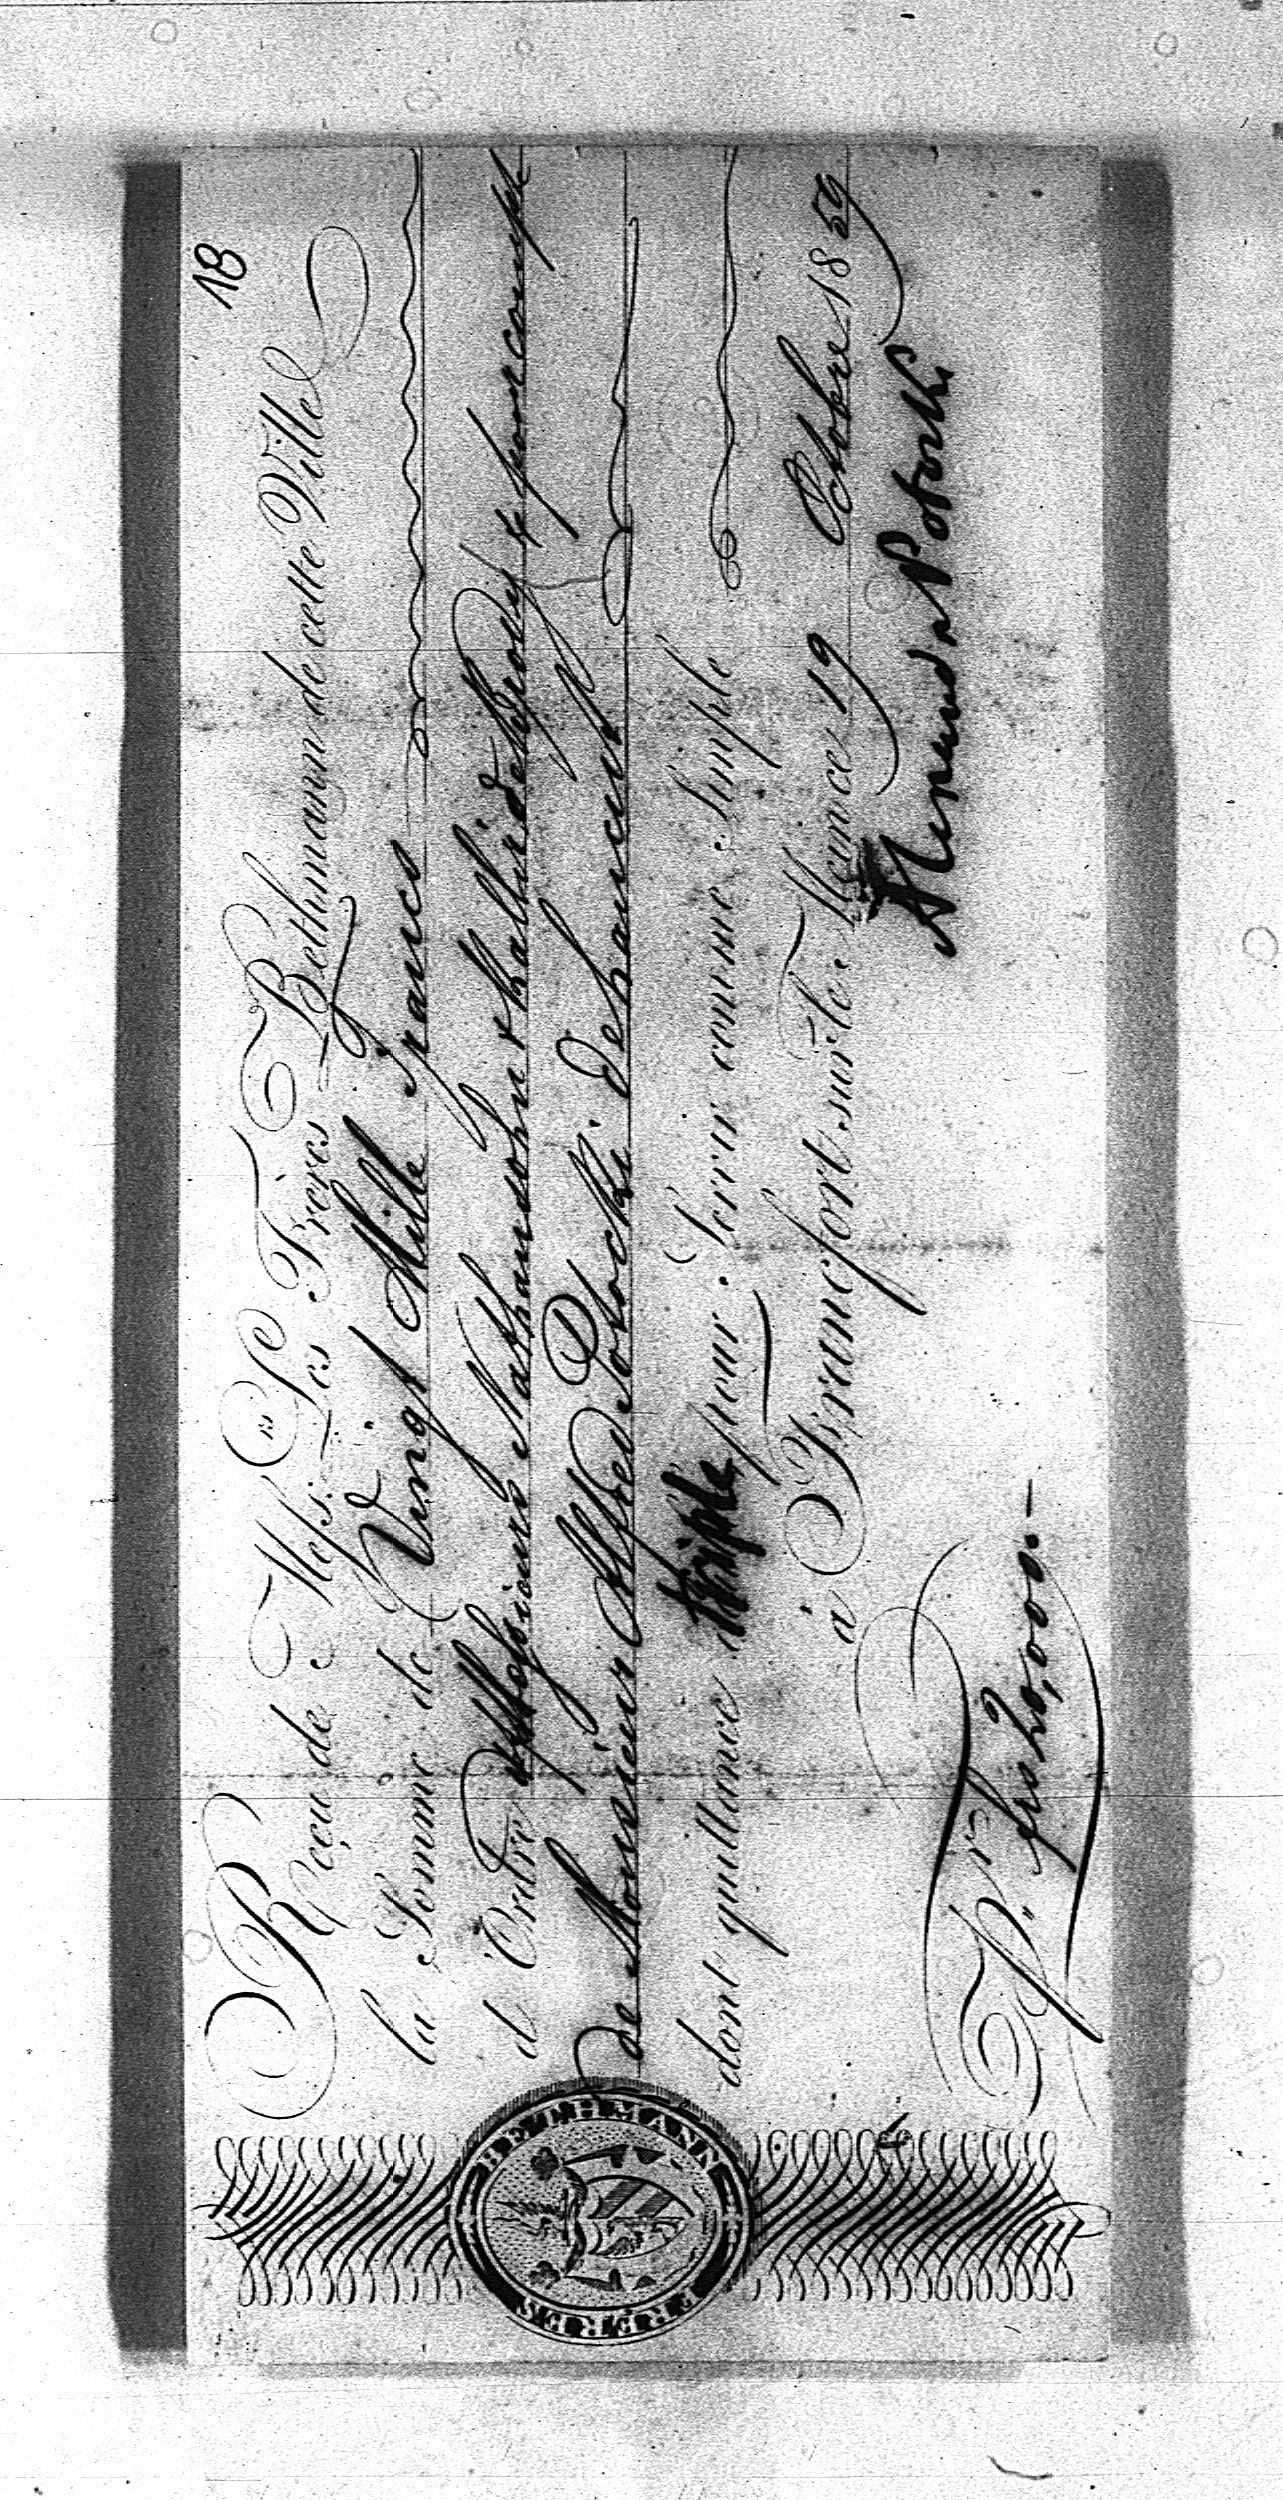 18
Reçu de Mess: Les Frères Bethmann de cette Ville
la Somme de Vingt Mille Francs
d'Ordre Messieurs Nathansohn & Kallir de Brody & pour compte
de Monsieur Alfred Potocki de Lancut
dont quittance triple pour Servir comme Simple
à Francfort sur le Mein ce 19 Octobre 1859
Potocki
P. frs 20,000.—
BETHMANN
FRERES